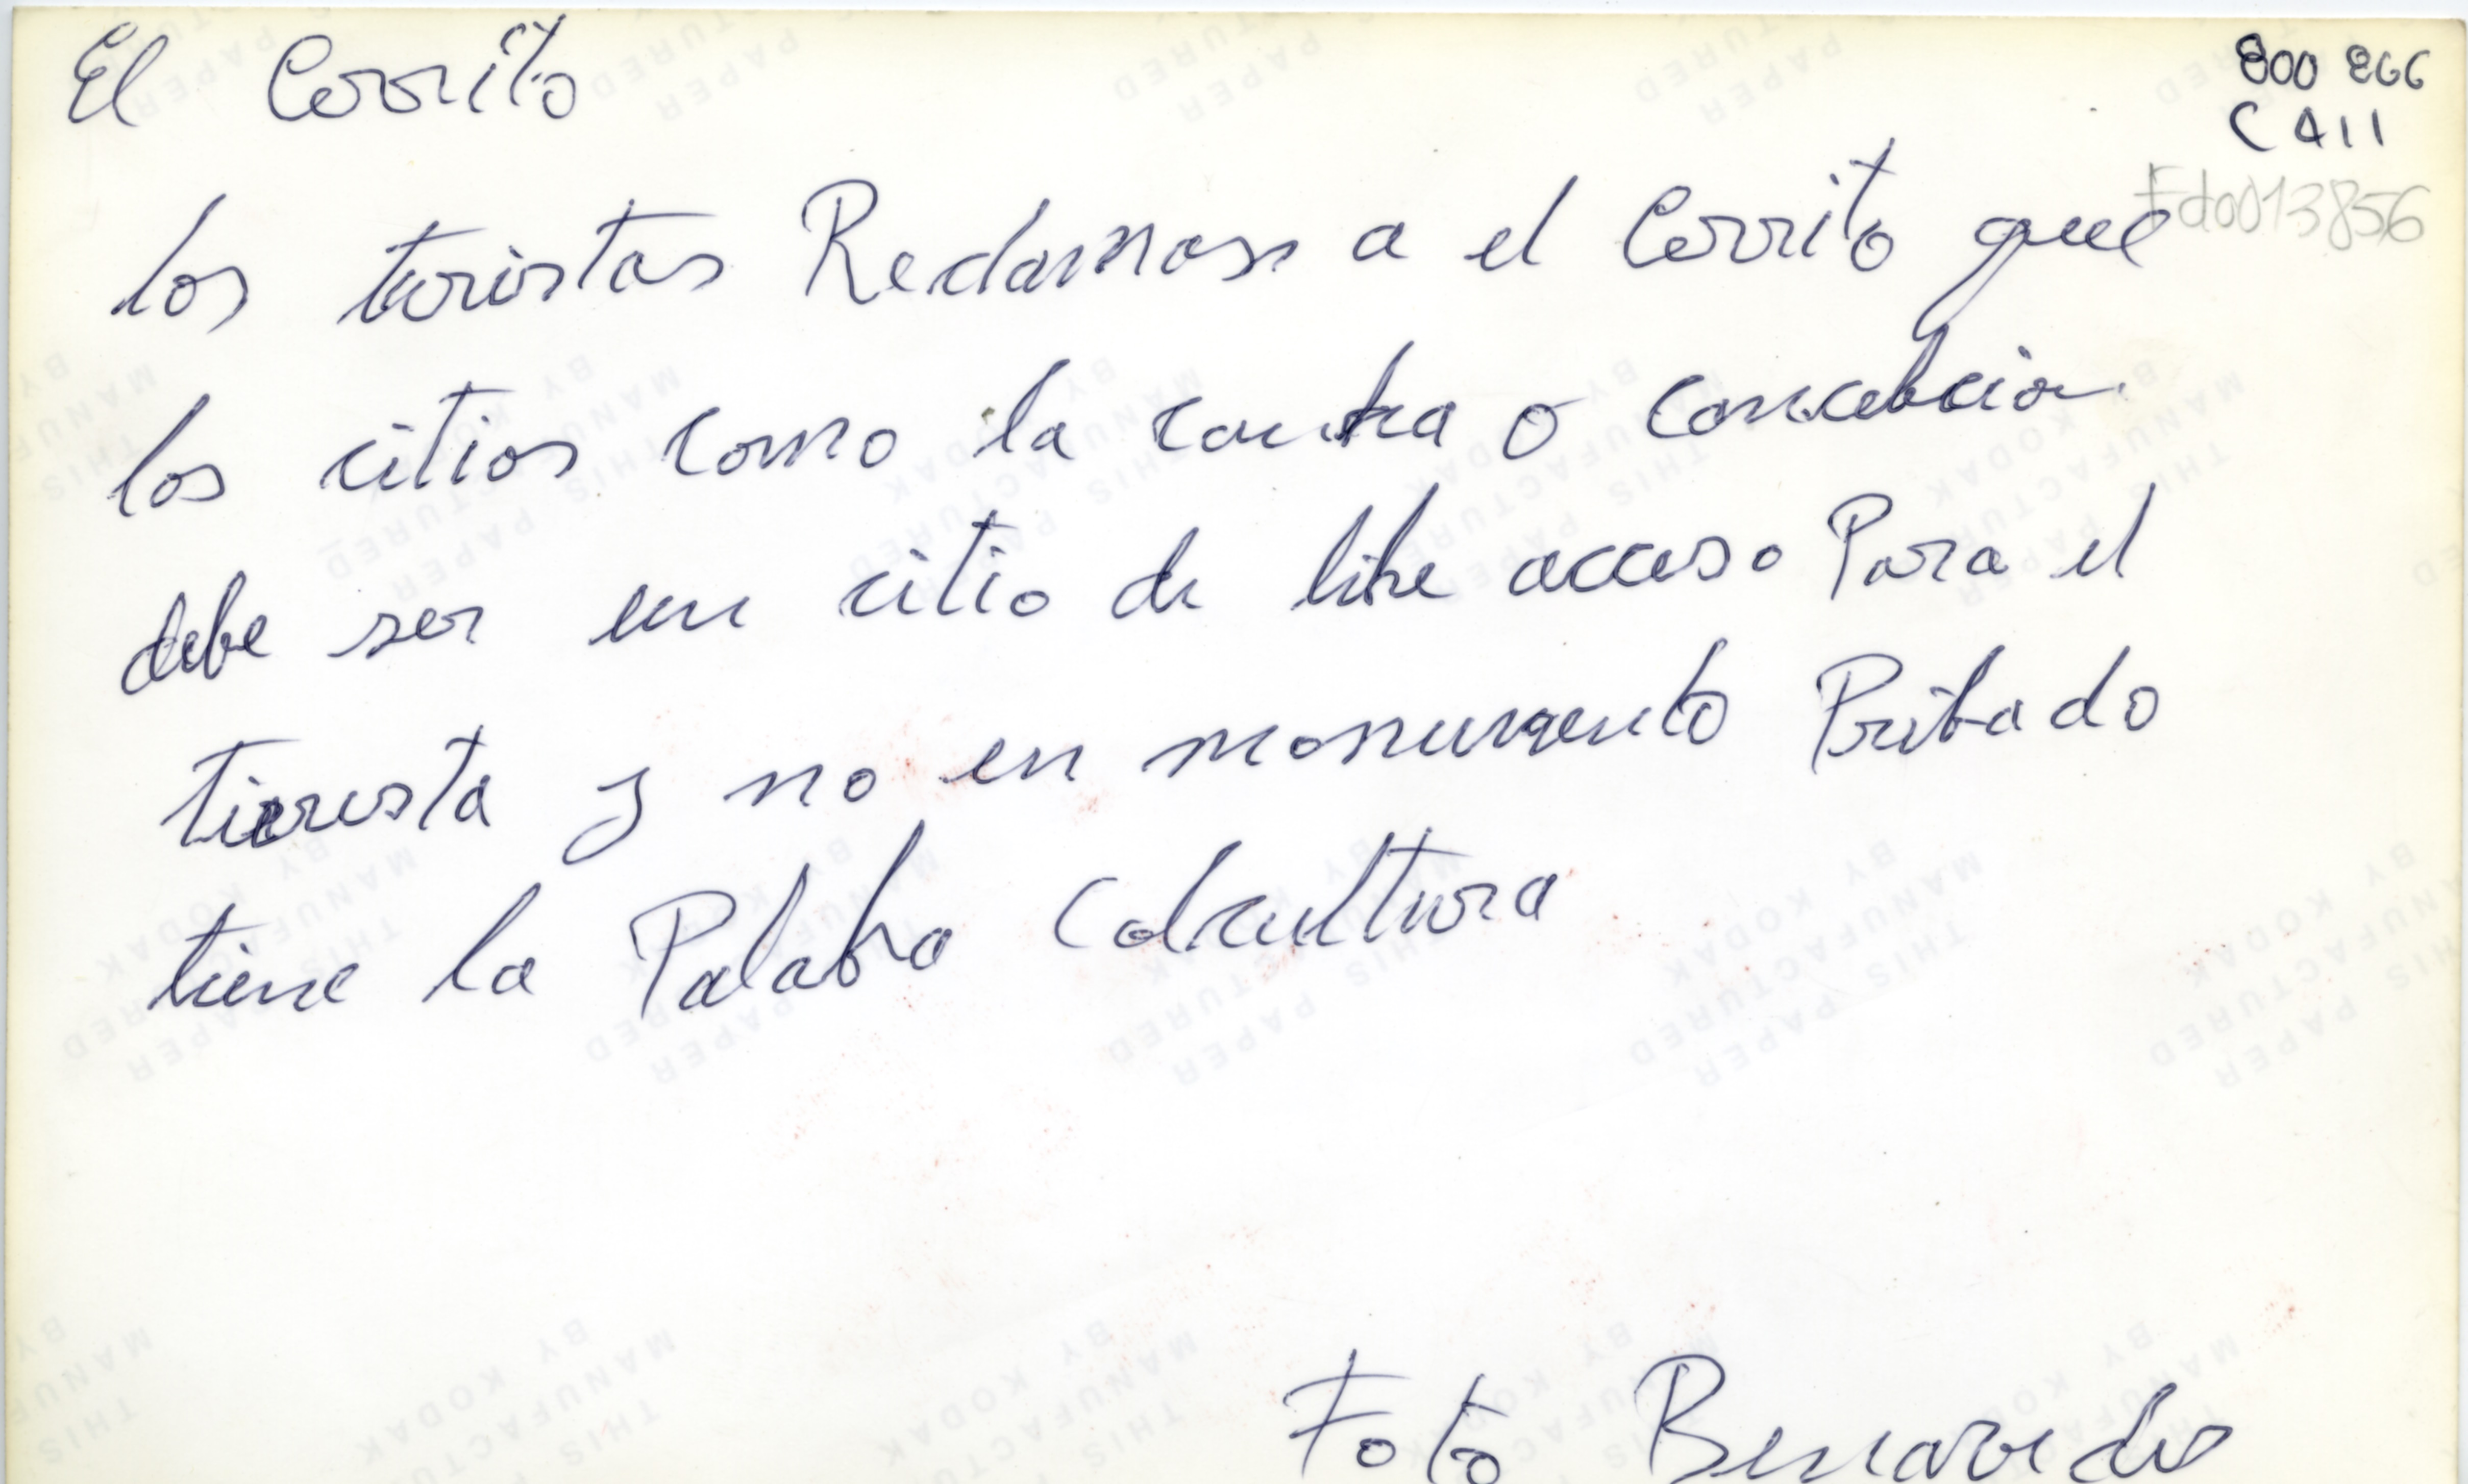 El Cerrito
800 866
C A11
Fd0013856
los turistas Reclaman a el Cerrito que
los citios como la contra o concebcion
debe ser un citio de libre acceso Para el
tierusta y no en monumento Pribado
tiene la Palabra Colcultura
Foto Benavides
THIS PAPER
MANUFACTURED
BY KODAK